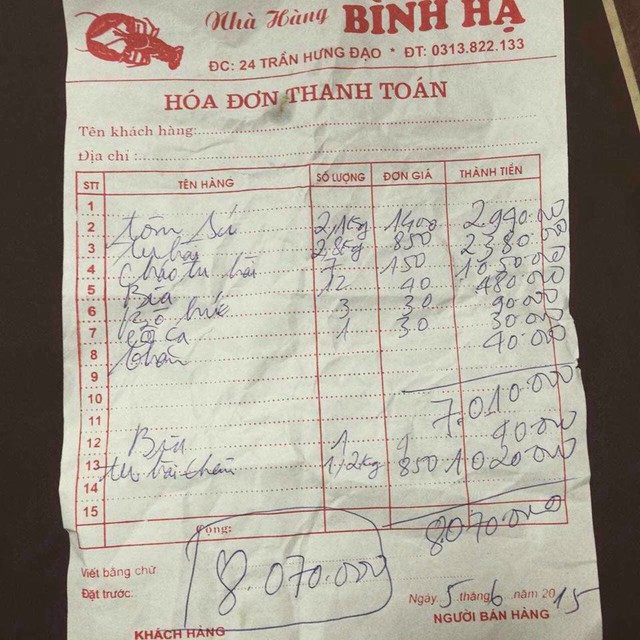 Nhà Hàng BÌNH HẠ
ĐC: 24 TRẦN HƯNG ĐẠO * ĐT: 0313.822.133
HÓA ĐƠN THANH TOÁN
Tên khách hàng:
Địa chỉ :
STT TÊN HÀNG SỐ LƯỢNG ĐƠN GIÁ THÀNH TIỀN
1
2 tôm sú 2,1kg 1400 2940.000
3 tu hài 2,8kg 850 2380.000
4 cháo tu hài 7 150 1050.000
5 Bia 12 40 480.000
6 bò húc 3 30 90.000
7 1 30 30.000
8 khăn 40.000
9
10 7.010.000
11
12 Bia 1 40.000
13 tu hài thêm 1,2kg 850 1020.000
14
15 8070.000
Cộng:
8.070.000
Viết bằng chữ
Đặt trước:
Ngày 5 tháng 6 năm 2015
KHÁCH HÀNG NGƯỜI BÁN HÀNG